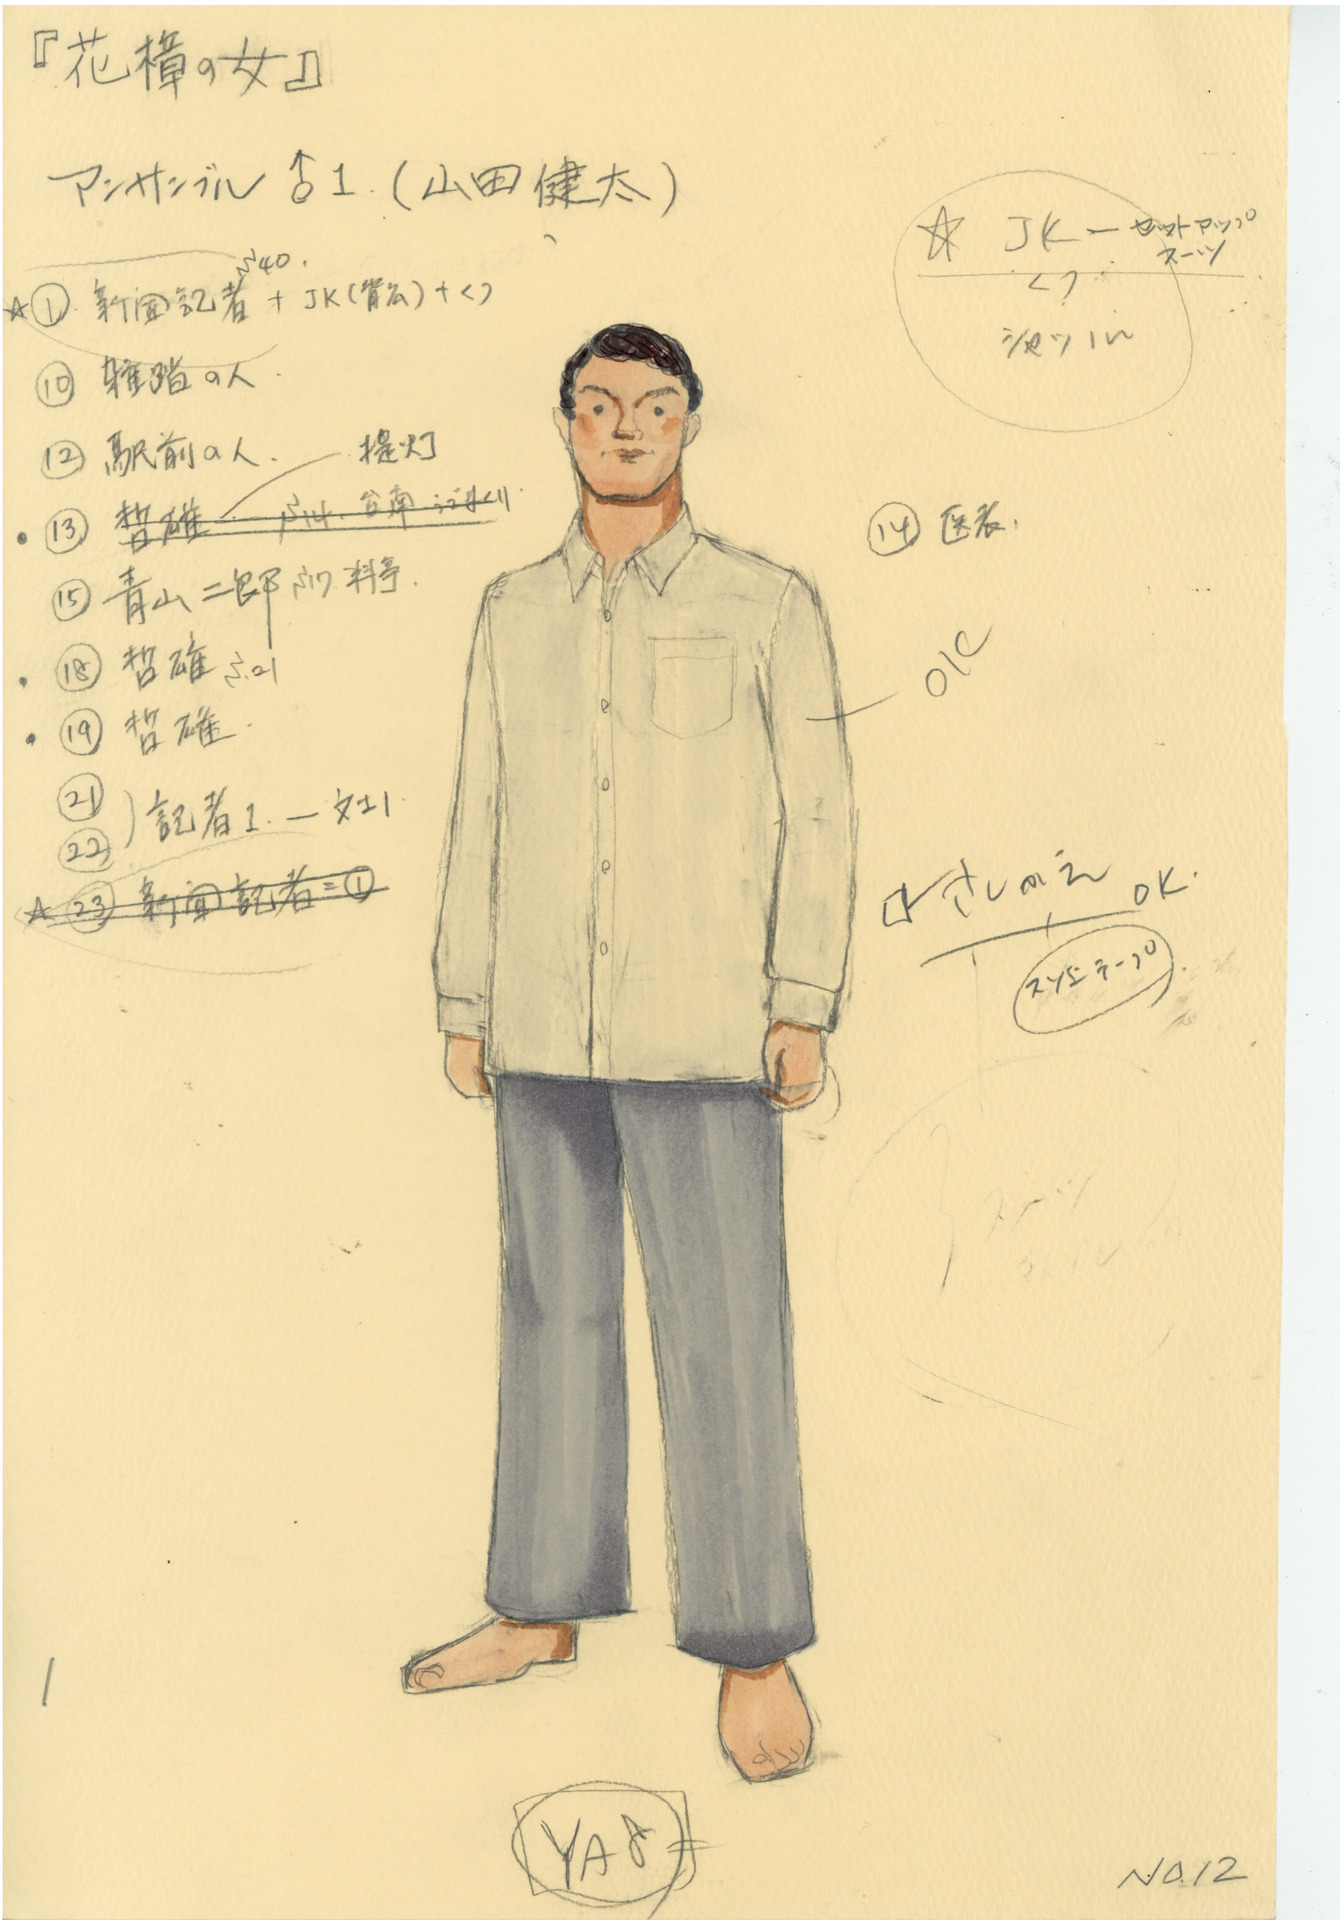 『花樟の女』
アンサンブル ♂1.(山田健太)
P.40.
☆① 新聞記者 + JK(背広)+くつ
⑩ 雑踏の人.
⑫ 駅前の人.
提灯
・⑬ 哲雄 P.14. 台南
⑮ 青山二郎 P.17 料亭.
・⑱ 哲雄 P.21
・⑲ 哲雄.
㉑
㉒
) 記者1. ー 文士1.
☆㉓ 新聞記者=①
☆ JK ー セットアップ
スーツ
くつ
シャツIN
⑭ 医表.
OK
さしかえ OK.
テープ
スーツ
YAδ
NO.12